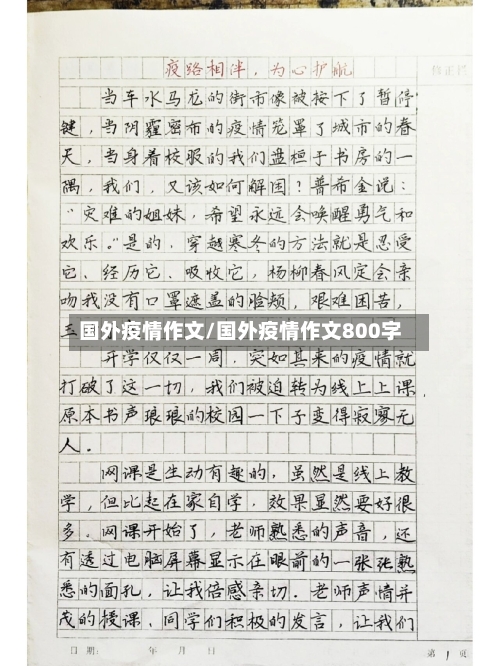 疫路相伴，为心护航
当车水马龙的街市像被按下了暂停
键，当阴霾密布的疫情笼罩了城市的春
天，当身着校服的我们盘桓于书房的一
隅，我们，又该如何解困？普希金说：
“灾难的姐妹，希望永远会唤醒勇气和
欢乐。”是的，穿越寒冬的方法就是忍受
它、经历它、吸收它，杨柳春风定会亲
吻我没有口罩遮盖的脸颊，艰难困苦，
国外疫情作文/国外疫情作文800字
开学仅仅一周，突如其来的疫情就
打破了这一切，我们被迫转为线上上课，
原本书声琅琅的校园一下子变得寂寥无
人。
网课是生动有趣的，虽然是线上教
学，但比起在家自学，效果显然要好很
多。网课开始了，老师熟悉的声音，还
有透过电脑屏幕显示在眼前的一张张熟
悉的面孔，让我倍感亲切。老师声情并
茂的授课、同学们积极的发言，让我们
日期： 年 月 日 第 1 页